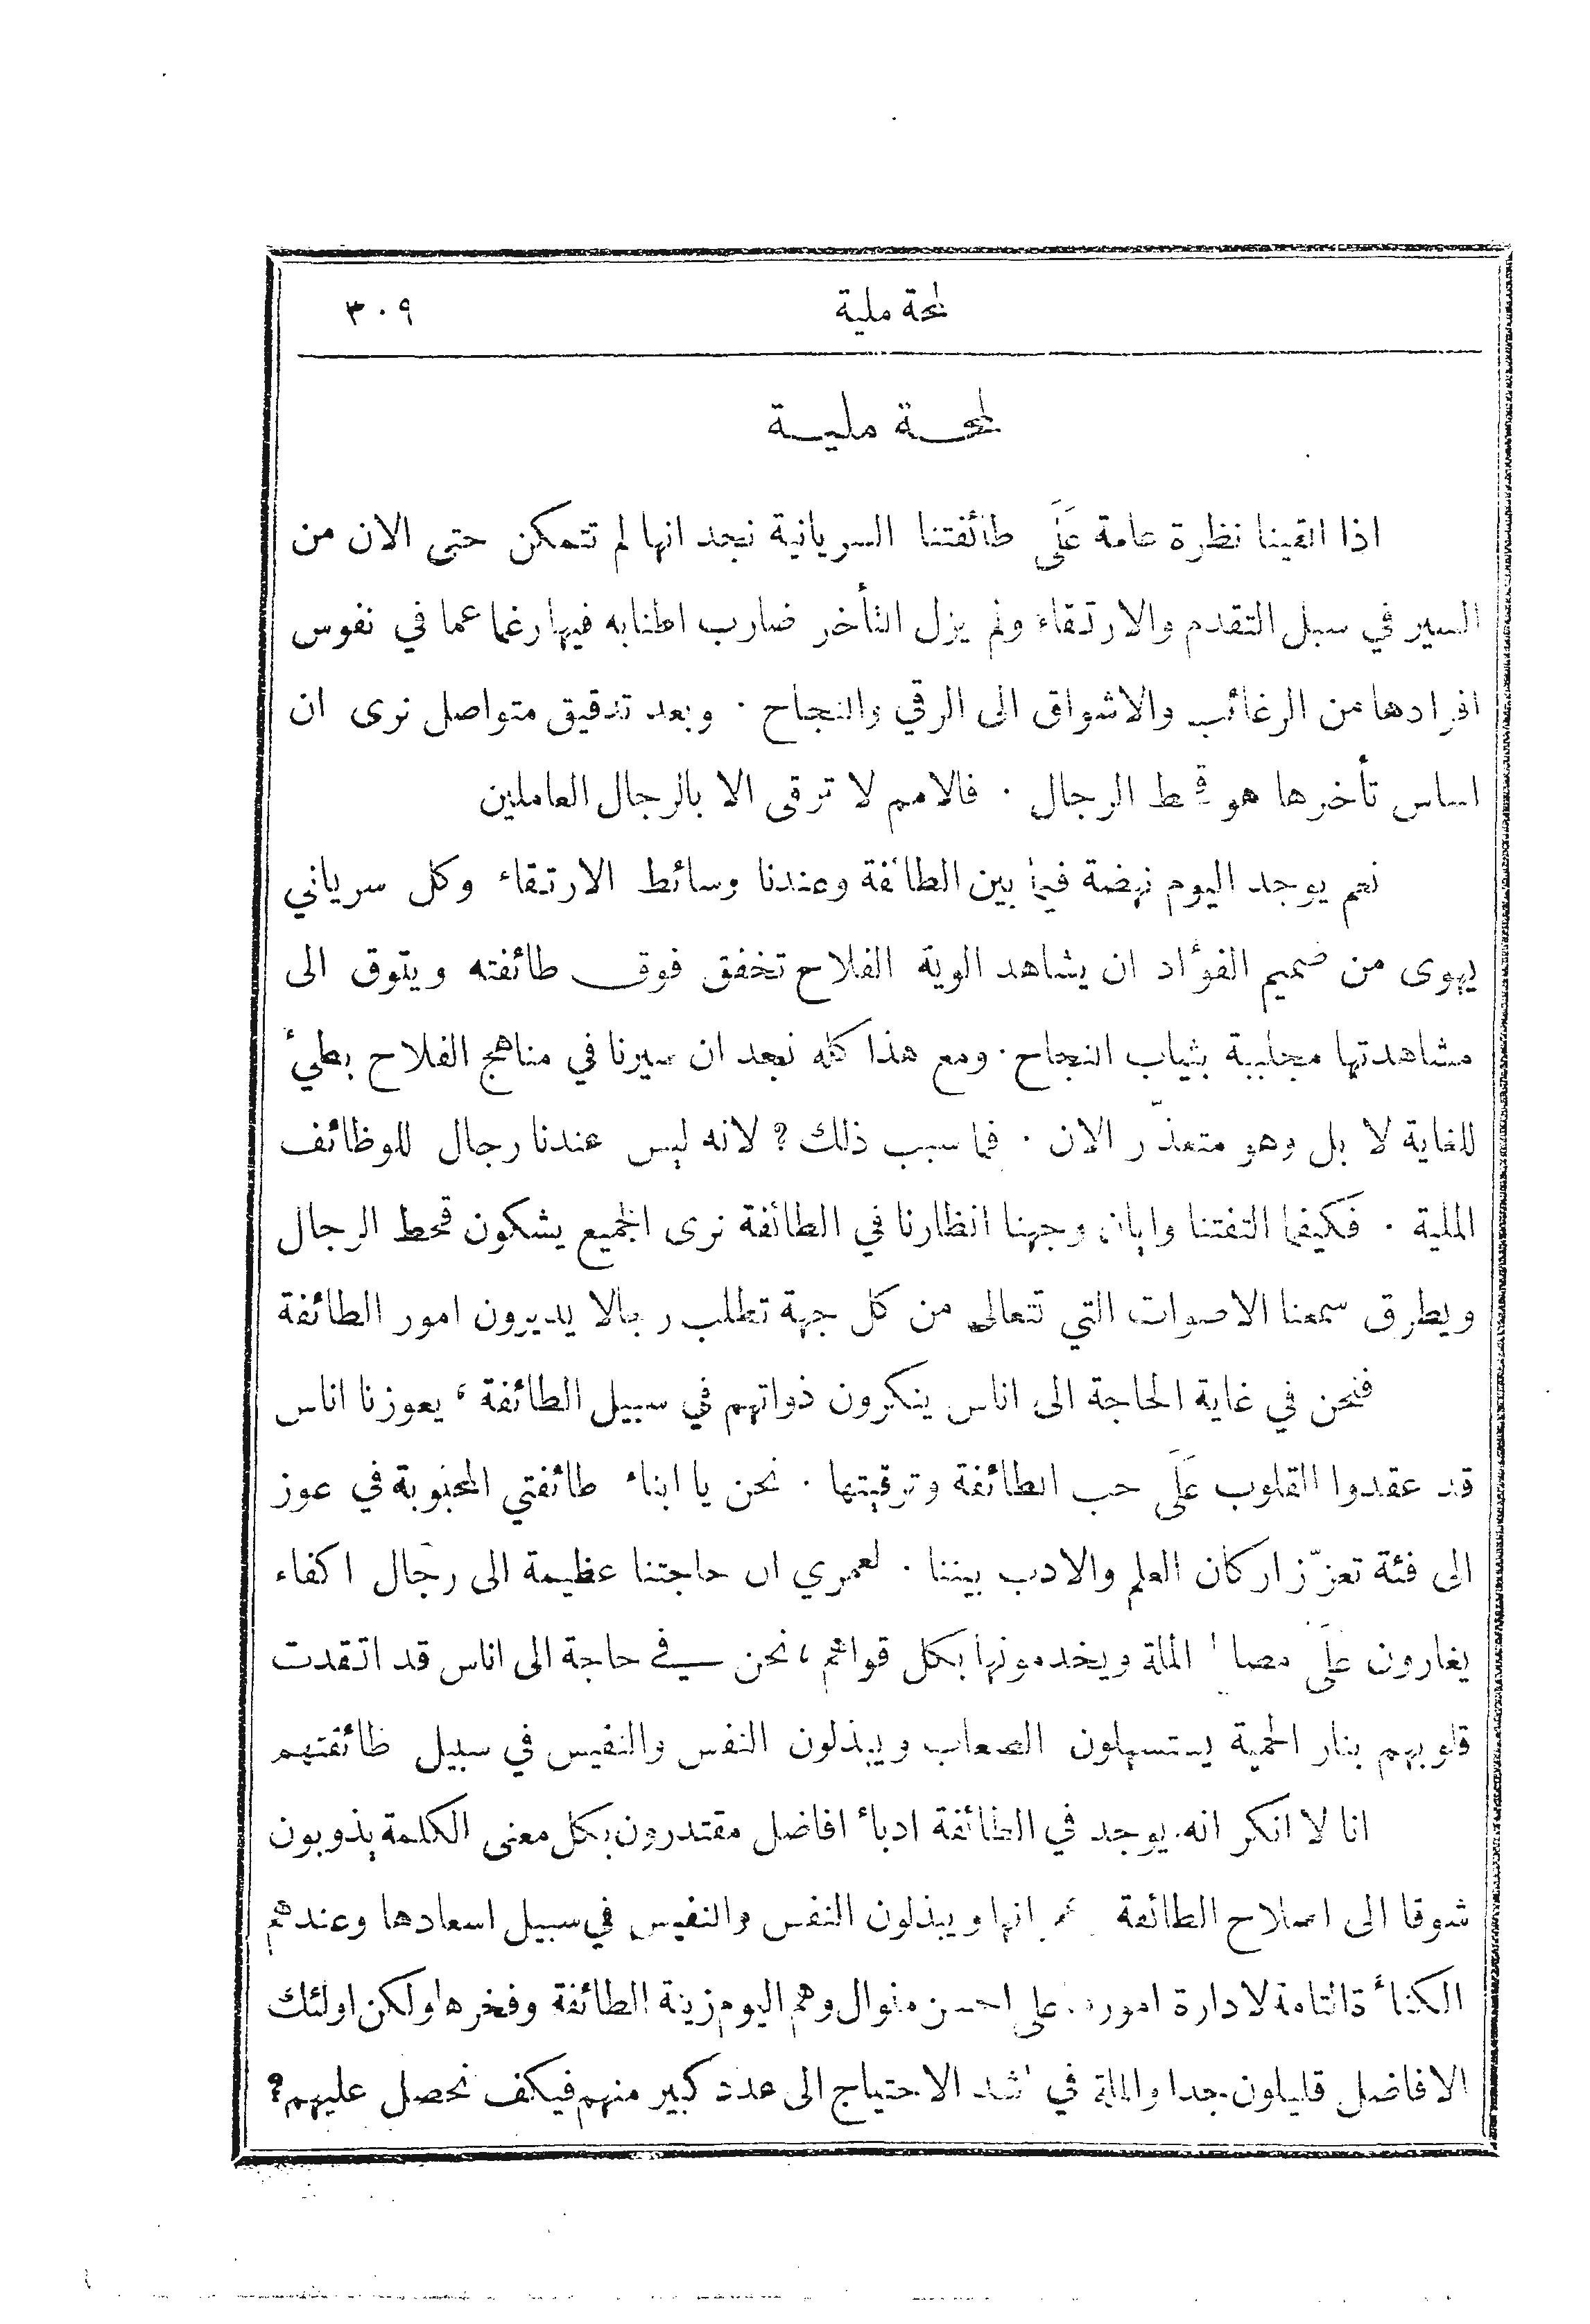 لمحة ملية ٣٠٩
لمحة ملية
اذا القينا نظرة عامة عَلَى طائفتنا السريانية نجد انها لم تتمكن حتى الان من
السير في سبل التقدم والارتقاء ولم يزل التأخر ضارب اطنابه فيها رغما عما في نفوس
افرادها من الرغائب والاشواق الى الرقي والنجاح . وبعد تدقيق متواصل نرى ان
اساس تأخرها هو قحط الرجال . فالامم لا ترقى الا بالرجال العاملين
نعم يوجد اليوم نهضة فيما بين الطائفة وعندنا وسائط الارتقاء وكل سرياني
يهوى من صميم الفؤاد ان يشاهد الوية الفلاح تخفق فوق طائفته ويتوق الى
مشاهدتها مجلببة بثياب النجاح . ومع هذا كله نجد ان سيرنا في مناهج الفلاح بطيءٌ
للغاية لا بل وهو متعذّر الان . فما سبب ذلك ؟ لانه ليس عندنا رجال للوظائف
الملية . فكيفما التفتنا وايان وجهنا انظارنا في الطائفة نرى الجميع يشكون قحط الرجال
ويطرق سمعنا الاصوات التي تتعالى من كل جهة تطلب رجالا يديرون امور الطائفة
فنحن في غاية الحاجة الى اناس ينكرون ذواتهم في سبيل الطائفة ، يعوزنا اناس
قد عقدوا القلوب عَلَى حب الطائفة وترقيتها . نحن يا ابناء طائفتي المحبوبة في عوز
الى فئة تعزّز اركان العلم والادب بيننا . لعمري ان حاجتنا عظيمة الى رجال اكفاء
يغارون عَلَى الملة ويخدمونها بكل قواهم ، نحن في حاجة الى اناس قد اتقدت
قلوبهم بنار الحمية يستسهلون الصعاب ويبذلون النفس والنفيس في سبيل طائفتهم
انا لا انكر انه يوجد في الطائفة ادباء افاضل مقتدرون بكل معنى الكلمة يذوبون
شوقا الى اصلاح الطائفة ويبذلون النفس والنفيس في سبيل اسعادها وعندهم
الكفاءة التامة لادارة امورها على احسن منوال وهم اليوم زينة الطائفة وفخرها ولكن اولئك
الافاضل قليلون جدا والملة في اشد الاحتياج الى عدد كبير منهم فيكف نحصل عليهم ؟